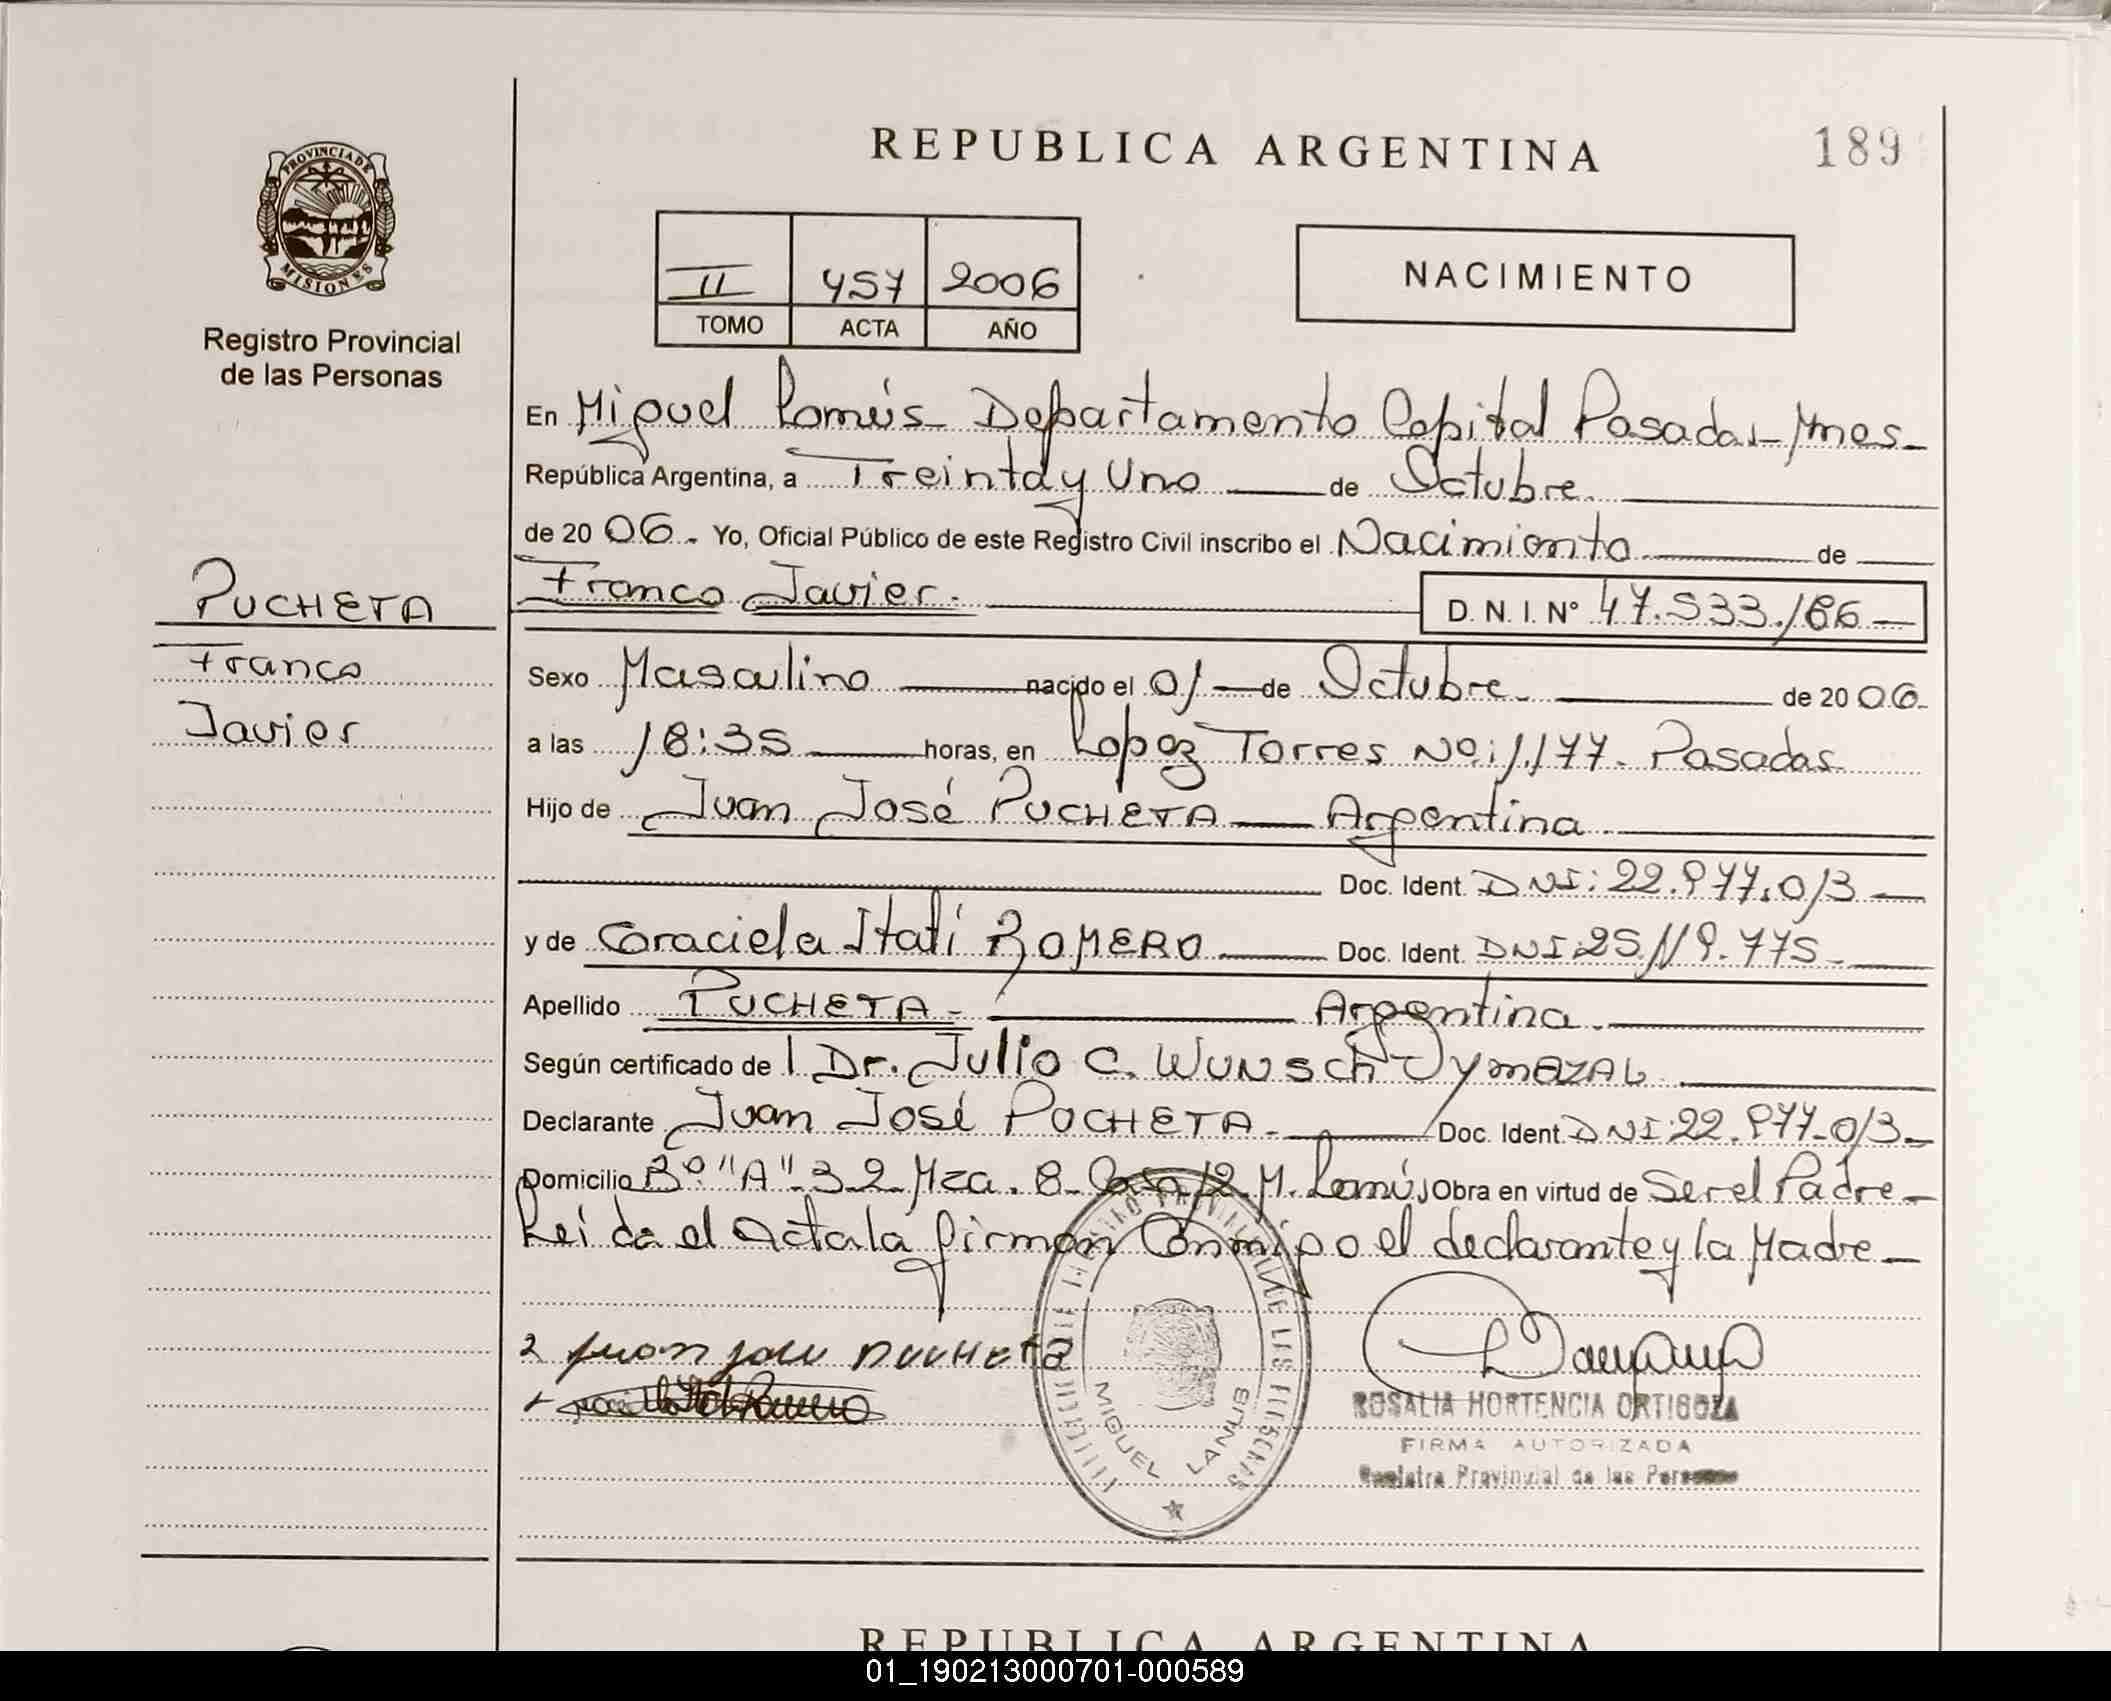 REPUBLICA ARGENTINA
189
PROVINCIA DE
MISIONES
Registro Provincial
de las Personas
II 457 2006
TOMO ACTA AÑO
NACIMIENTO
En Miguel Lanús Departamento Capital Posadas Mnes
República Argentina, a Treinta y Uno de Octubre
de 2006. Yo, Oficial Público de este Registro Civil inscribo el Nacimiento de
Franco Javier. D. N. I. Nº 47.533.186
PUCHETA
Franco
Javier
Sexo Masculino nacido el 01 de Octubre de 2006
a las 18:35 horas, en Lopez Torres Nº: 1.177. Posadas
Hijo de Juan José PUCHETA Argentina
Doc. Ident. DNI: 22.977.013
y de Graciela Itatí ROMERO Doc. Ident. DNI: 25.119.775
Apellido PUCHETA Argentina.
Según certificado de Dr. Julio C. WUNSCH YMAZAL
Declarante Juan José PUCHETA Doc. Ident. DNI: 22.977.013
Domicilio Bº "A" 32 Mza. 8 Casa 12 M. Lanús Obra en virtud de Ser el Padre
Leida el Acta la firman Conmigo el declarante y la Madre
2 Juan José PUCHETA
MIGUEL LANUS
ROSALIA HORTENCIA ORTIGOZA
FIRMA AUTORIZADA
Registro Provincial de las Personas
REPUBLICA ARGENTINA
01_190213000701-000589